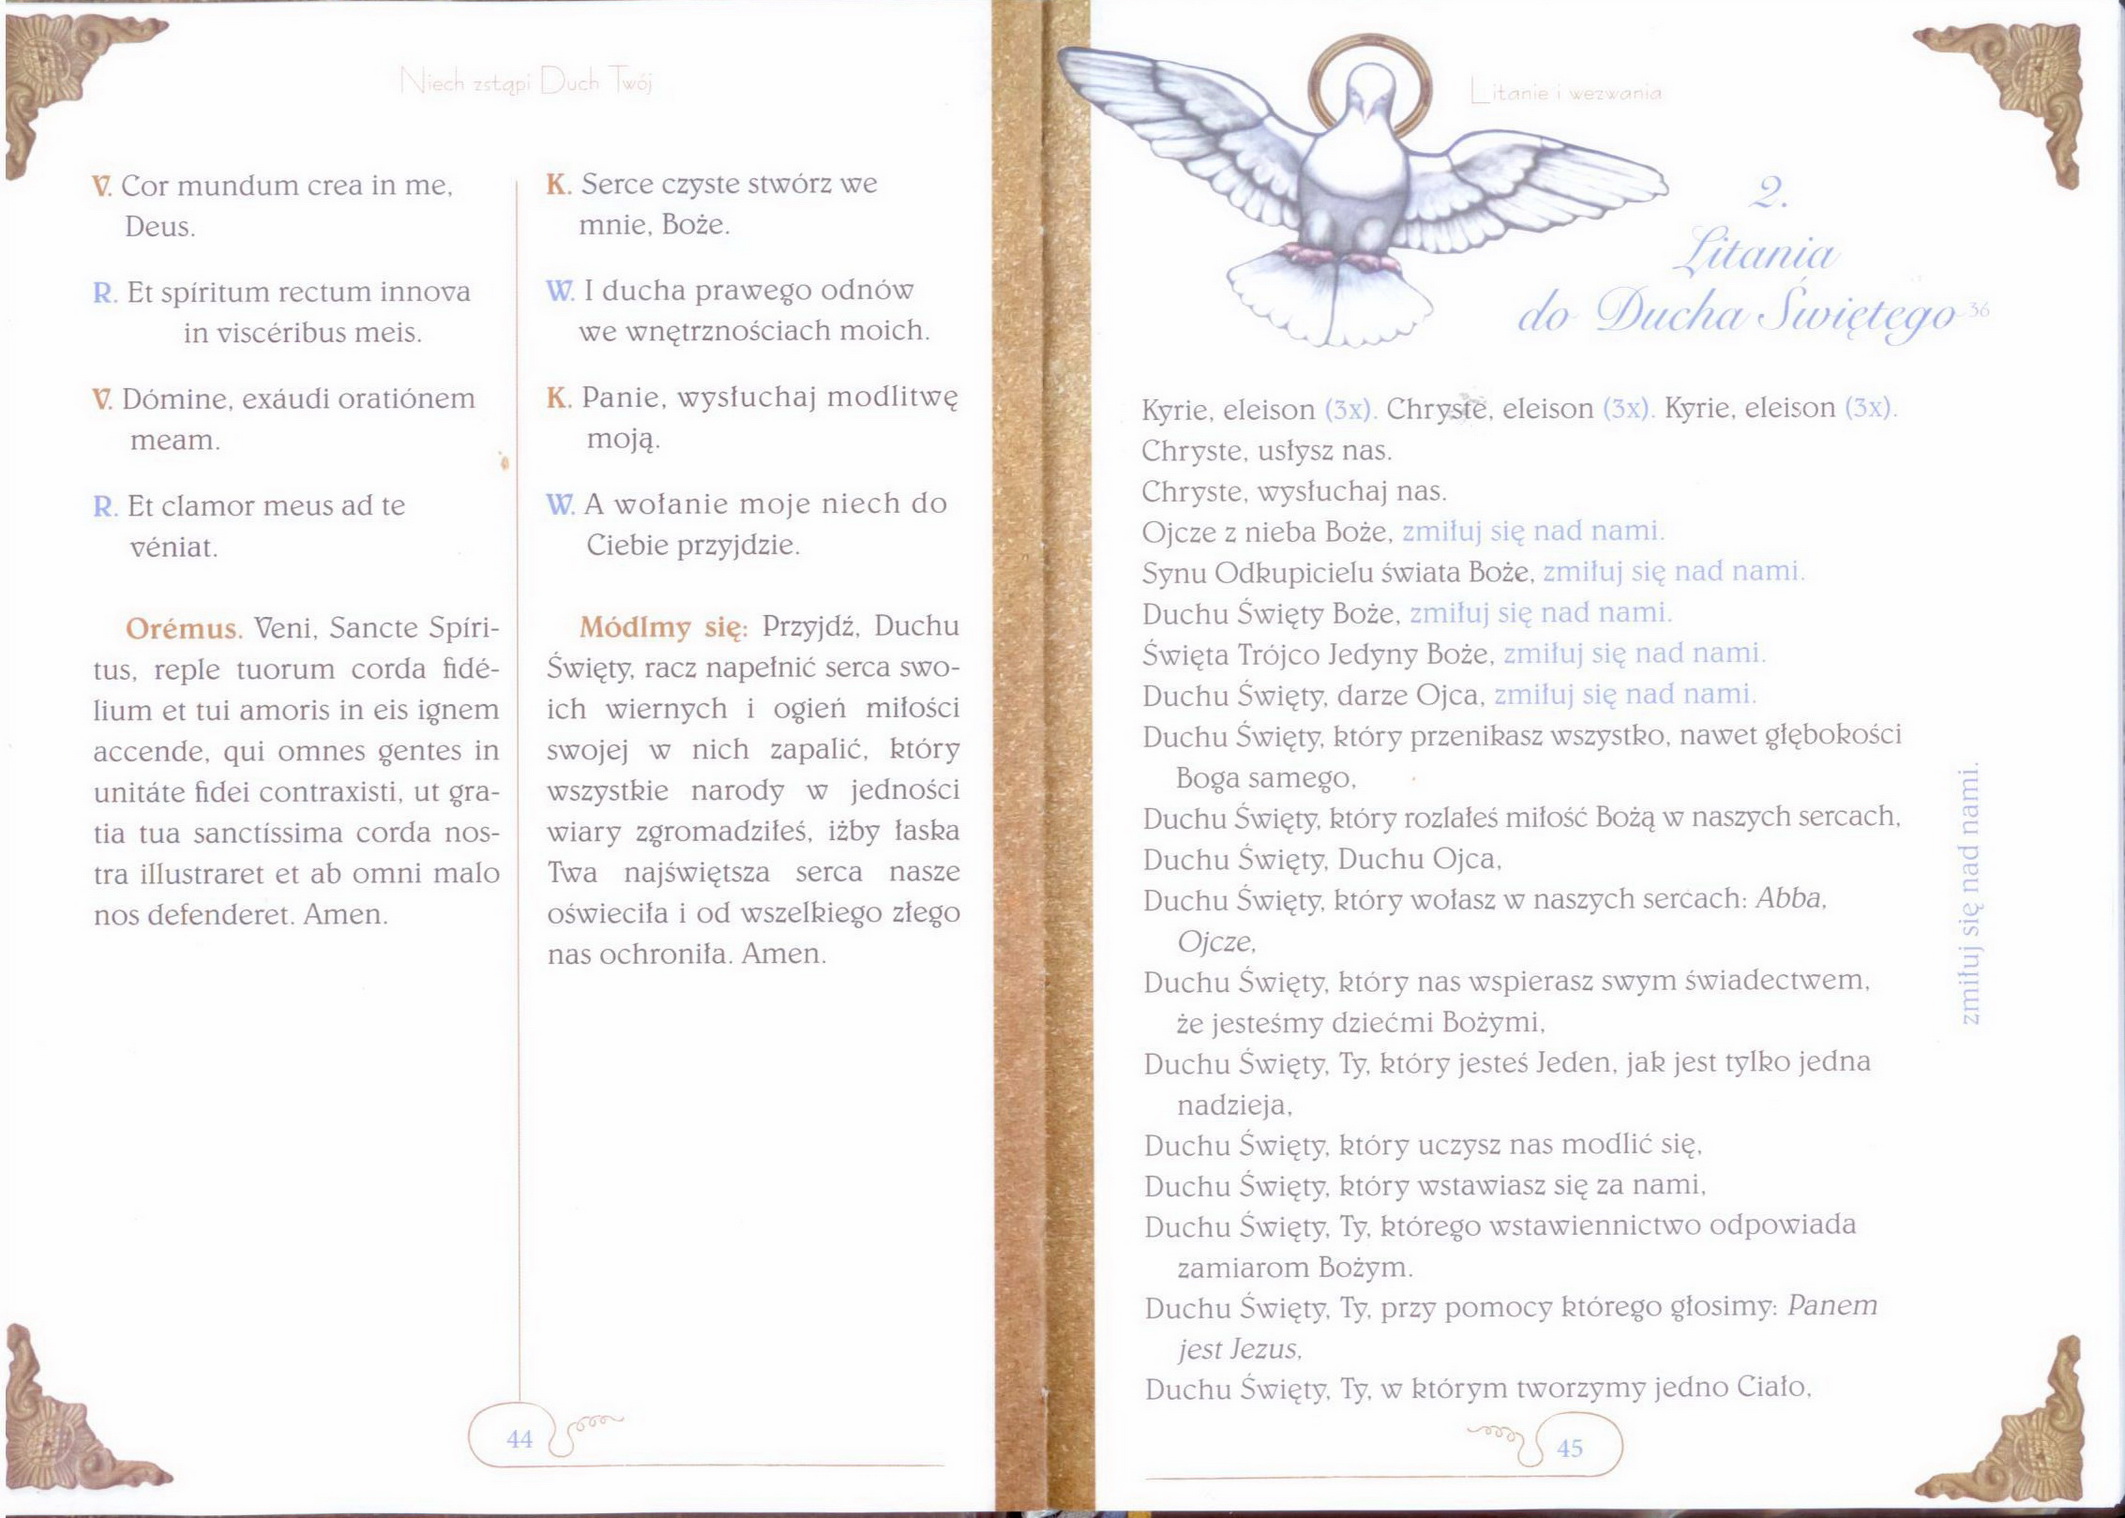 Niech zstąpi Duch Twój
V. Cor mundum crea in me,
Deus.
R. Et spíritum rectum innova
in viscéribus meis.
V. Dómine, exáudi oratiónem
meam.
R. Et clamor meus ad te
véniat.
Orémus. Veni, Sancte Spíri-
tus, reple tuorum corda fidé-
lium et tui amoris in eis ignem
accende, qui omnes gentes in
unitáte fidei contraxisti, ut gra-
tia tua sanctíssima corda nos-
tra illustraret et ab omni malo
nos defenderet. Amen.
K. Serce czyste stwórz we
mnie, Boże.
W. I ducha prawego odnów
we wnętrznościach moich.
K. Panie, wysłuchaj modlitwę
moją.
W. A wołanie moje niech do
Ciebie przyjdzie.
Módlmy się: Przyjdź, Duchu
Święty, racz napełnić serca swo-
ich wiernych i ogień miłości
swojej w nich zapalić, który
wszystkie narody w jedności
wiary zgromadziłeś, iżby łaska
Twa najświętsza serca nasze
oświeciła i od wszelkiego złego
nas ochroniła. Amen.
44
Litanie i wezwania
2.
Litania
do Ducha Świętego 36
Kyrie, eleison (3x). Chryste, eleison (3x). Kyrie, eleison (3x).
Chryste, usłysz nas.
Chryste, wysłuchaj nas.
Ojcze z nieba Boże, zmiłuj się nad nami.
Synu Odkupicielu świata Boże, zmiłuj się nad nami.
Duchu Święty Boże, zmiłuj się nad nami.
Święta Trójco Jedyny Boże, zmiłuj się nad nami.
Duchu Święty, darze Ojca, zmiłuj się nad nami.
Duchu Święty, który przenikasz wszystko, nawet głębokości
Boga samego,
Duchu Święty, który rozlałeś miłość Bożą w naszych sercach,
Duchu Święty, Duchu Ojca,
Duchu Święty, który wołasz w naszych sercach: Abba,
Ojcze,
Duchu Święty, który nas wspierasz swym świadectwem,
że jesteśmy dziećmi Bożymi,
Duchu Święty, Ty, który jesteś Jeden, jak jest tylko jedna
nadzieja,
Duchu Święty, który uczysz nas modlić się,
Duchu Święty, który wstawiasz się za nami,
Duchu Święty, Ty, którego wstawiennictwo odpowiada
zamiarom Bożym.
Duchu Święty, Ty, przy pomocy którego głosimy: Panem
jest Jezus,
Duchu Święty, Ty, w którym tworzymy jedno Ciało,
zmiłuj się nad nami.
45